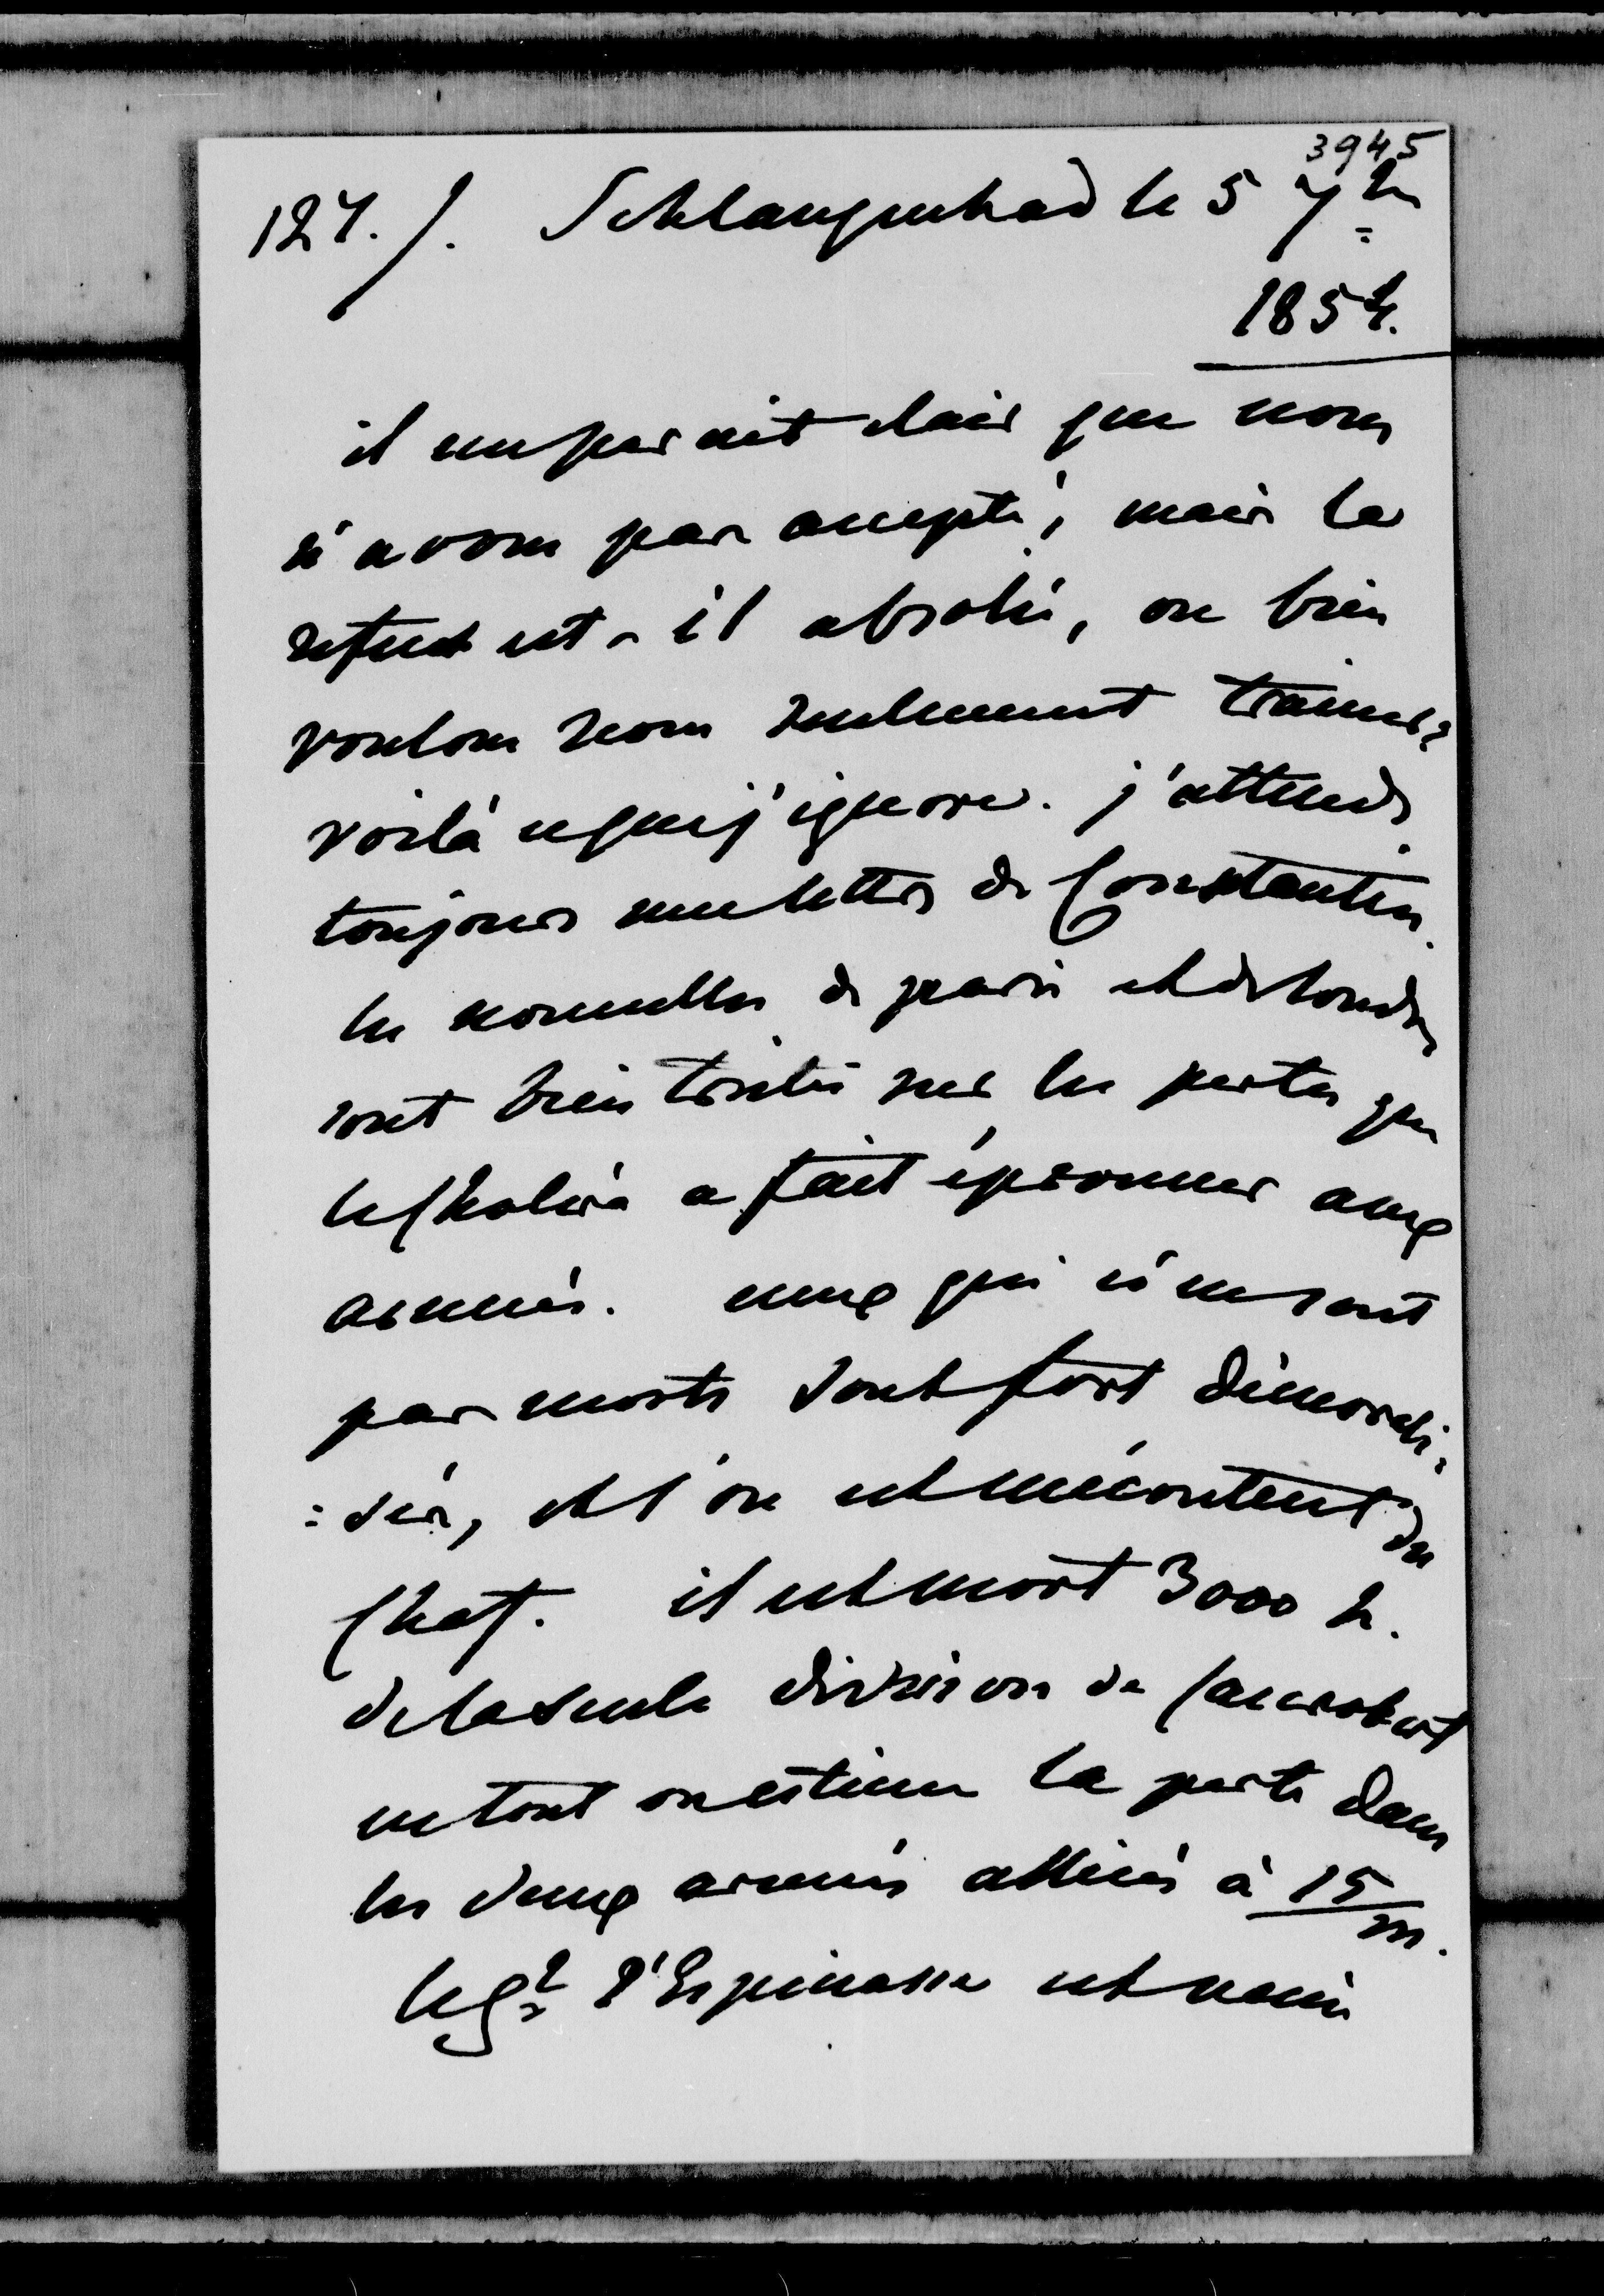 3945
127./. Schlangenbad le 5 7bre
1854.
il me parait clair que nous
n'avons pas accepté; mais le
refus est-il absolu, ou bien
voulons nous seulement trainer?
voilà ce que j'ignore. j'attends
toujours une lettre de Constantin.
les nouvelles de paris et de londres
sont bien tristes sur les pertes que
le choléra a fait éprouver aux
armées. ceux qui n'en sont
pas morts sont fort démorali-
:sés, et l'on est mécontent du
chef. il est mort 3000 h.
de la seule division de Canrobert
en tout on estime la perte dans
les deux armées alliées à 15/m.
le gal d'Espinasse est revenu